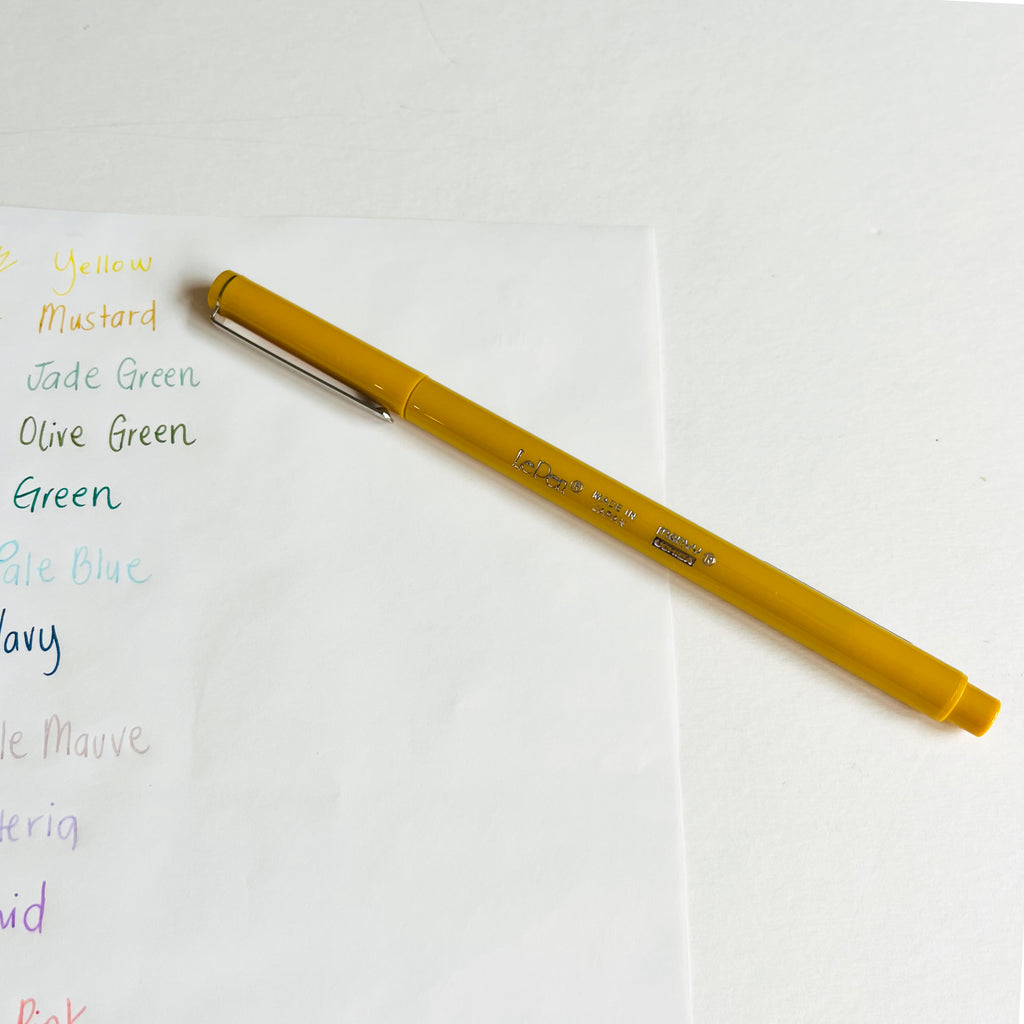 Yellow
Mustard
Jade Green
Olive Green
Green
Pale Blue
Navy
le Mauve
teria
id
Pink
LePen® MADE IN
JAPAN
MARVY®
UCHIDA